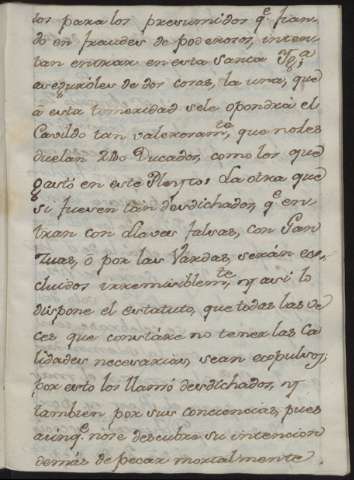 tos para los presumidos q.e fian-
do en fraudes de poderosos, inten-
tan entrar en esta Santa Ygª
aseguroles de dos cosas, la una, que
à esta temeridad sele opondrá el
Cavildo tan valerosam.te, que no les
duelan 2D0 Ducados, como los que
gastó en este Pleyto: La otra que
si fuesen tan desdichados, q.e en-
tran con Llaves falsas, con Gan-
zuas, ò por las Vardas, serán ex-
cluidos irremisiblem.te, y asi lo
dispone el estatuto, que todas las ve-
ces que constáre no tener las Ca-
lidades necesarias, sean expulsos;
por esto los llamó desdichados, y
tambien por sus conciencias, pues
aunq.e nose descubra su intencion
demás de pecar mortalmente